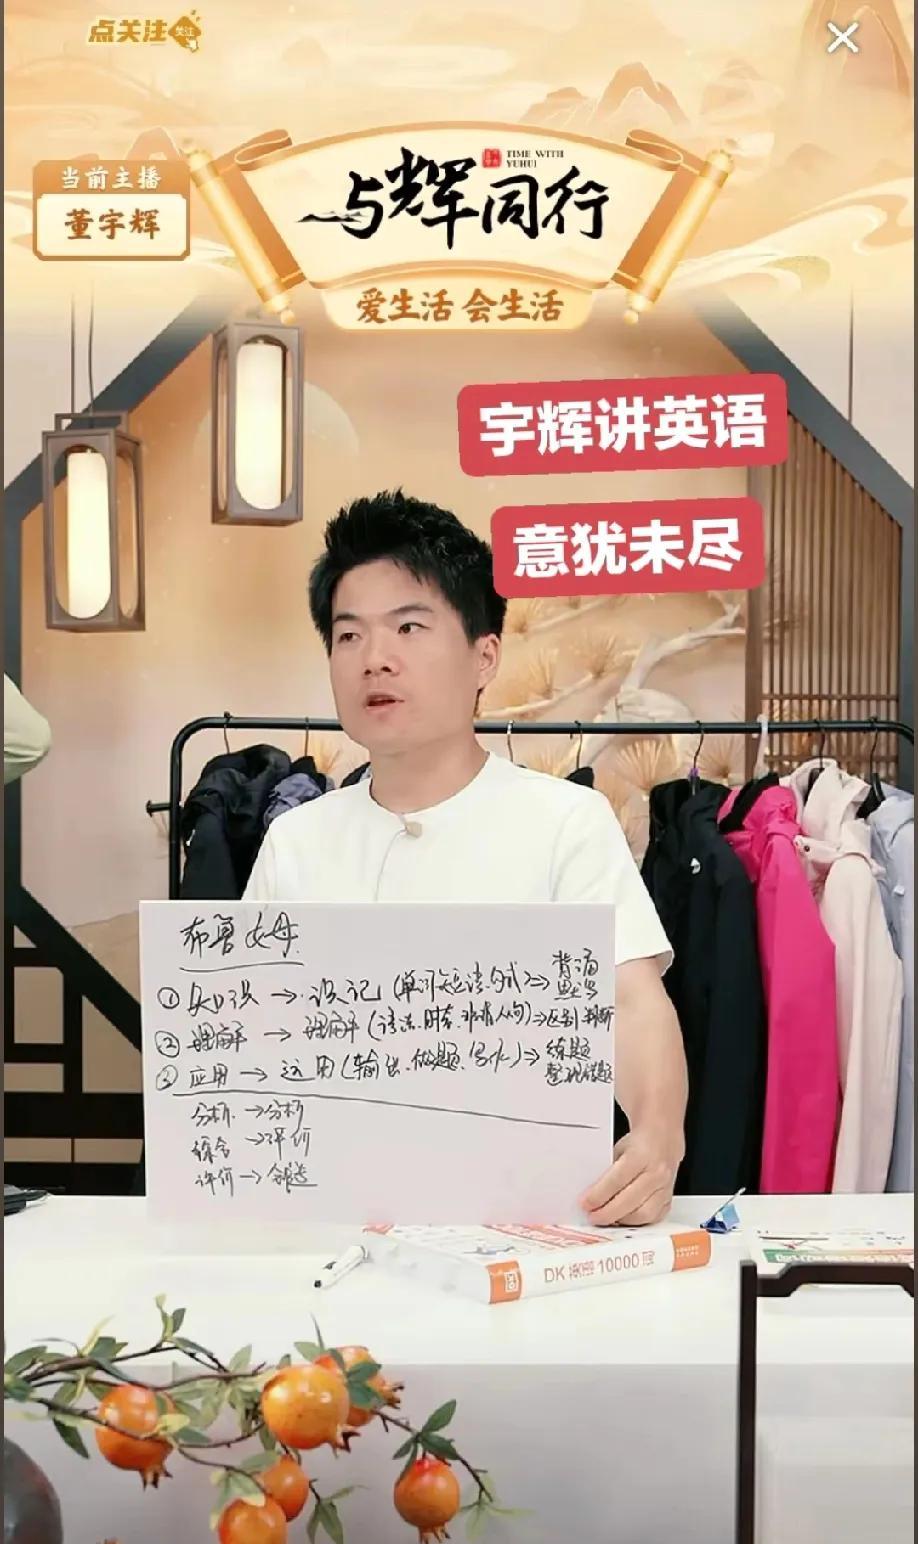 点关注
关注
当前主播
董宇辉
与辉同行
TIME WITH
YUHUI
爱生活 会生活
宇辉讲英语
意犹未尽
布鲁姆
①知识→识记(单词、短语、句式)⇒背诵
默写
②理解→理解(语法、时态、非谓人句)⇒区别 判断
③应用→运用(输出、做题、写作)⇒练题
整理错题
分析→分析
综合→评价
评价→创造
DK 10000